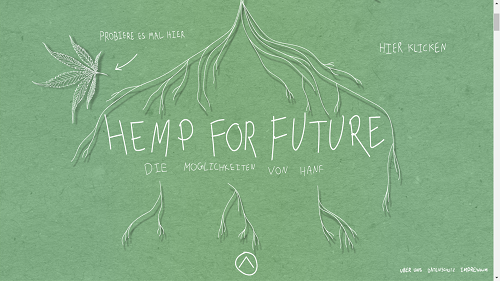 PROBIERE ES MAL HIER
HIER KLICKEN
HEMP FOR FUTURE
DIE MÖGLICHKEITEN VON HANF
ÜBER UNS DATENSCHUTZ IMPRESSUM